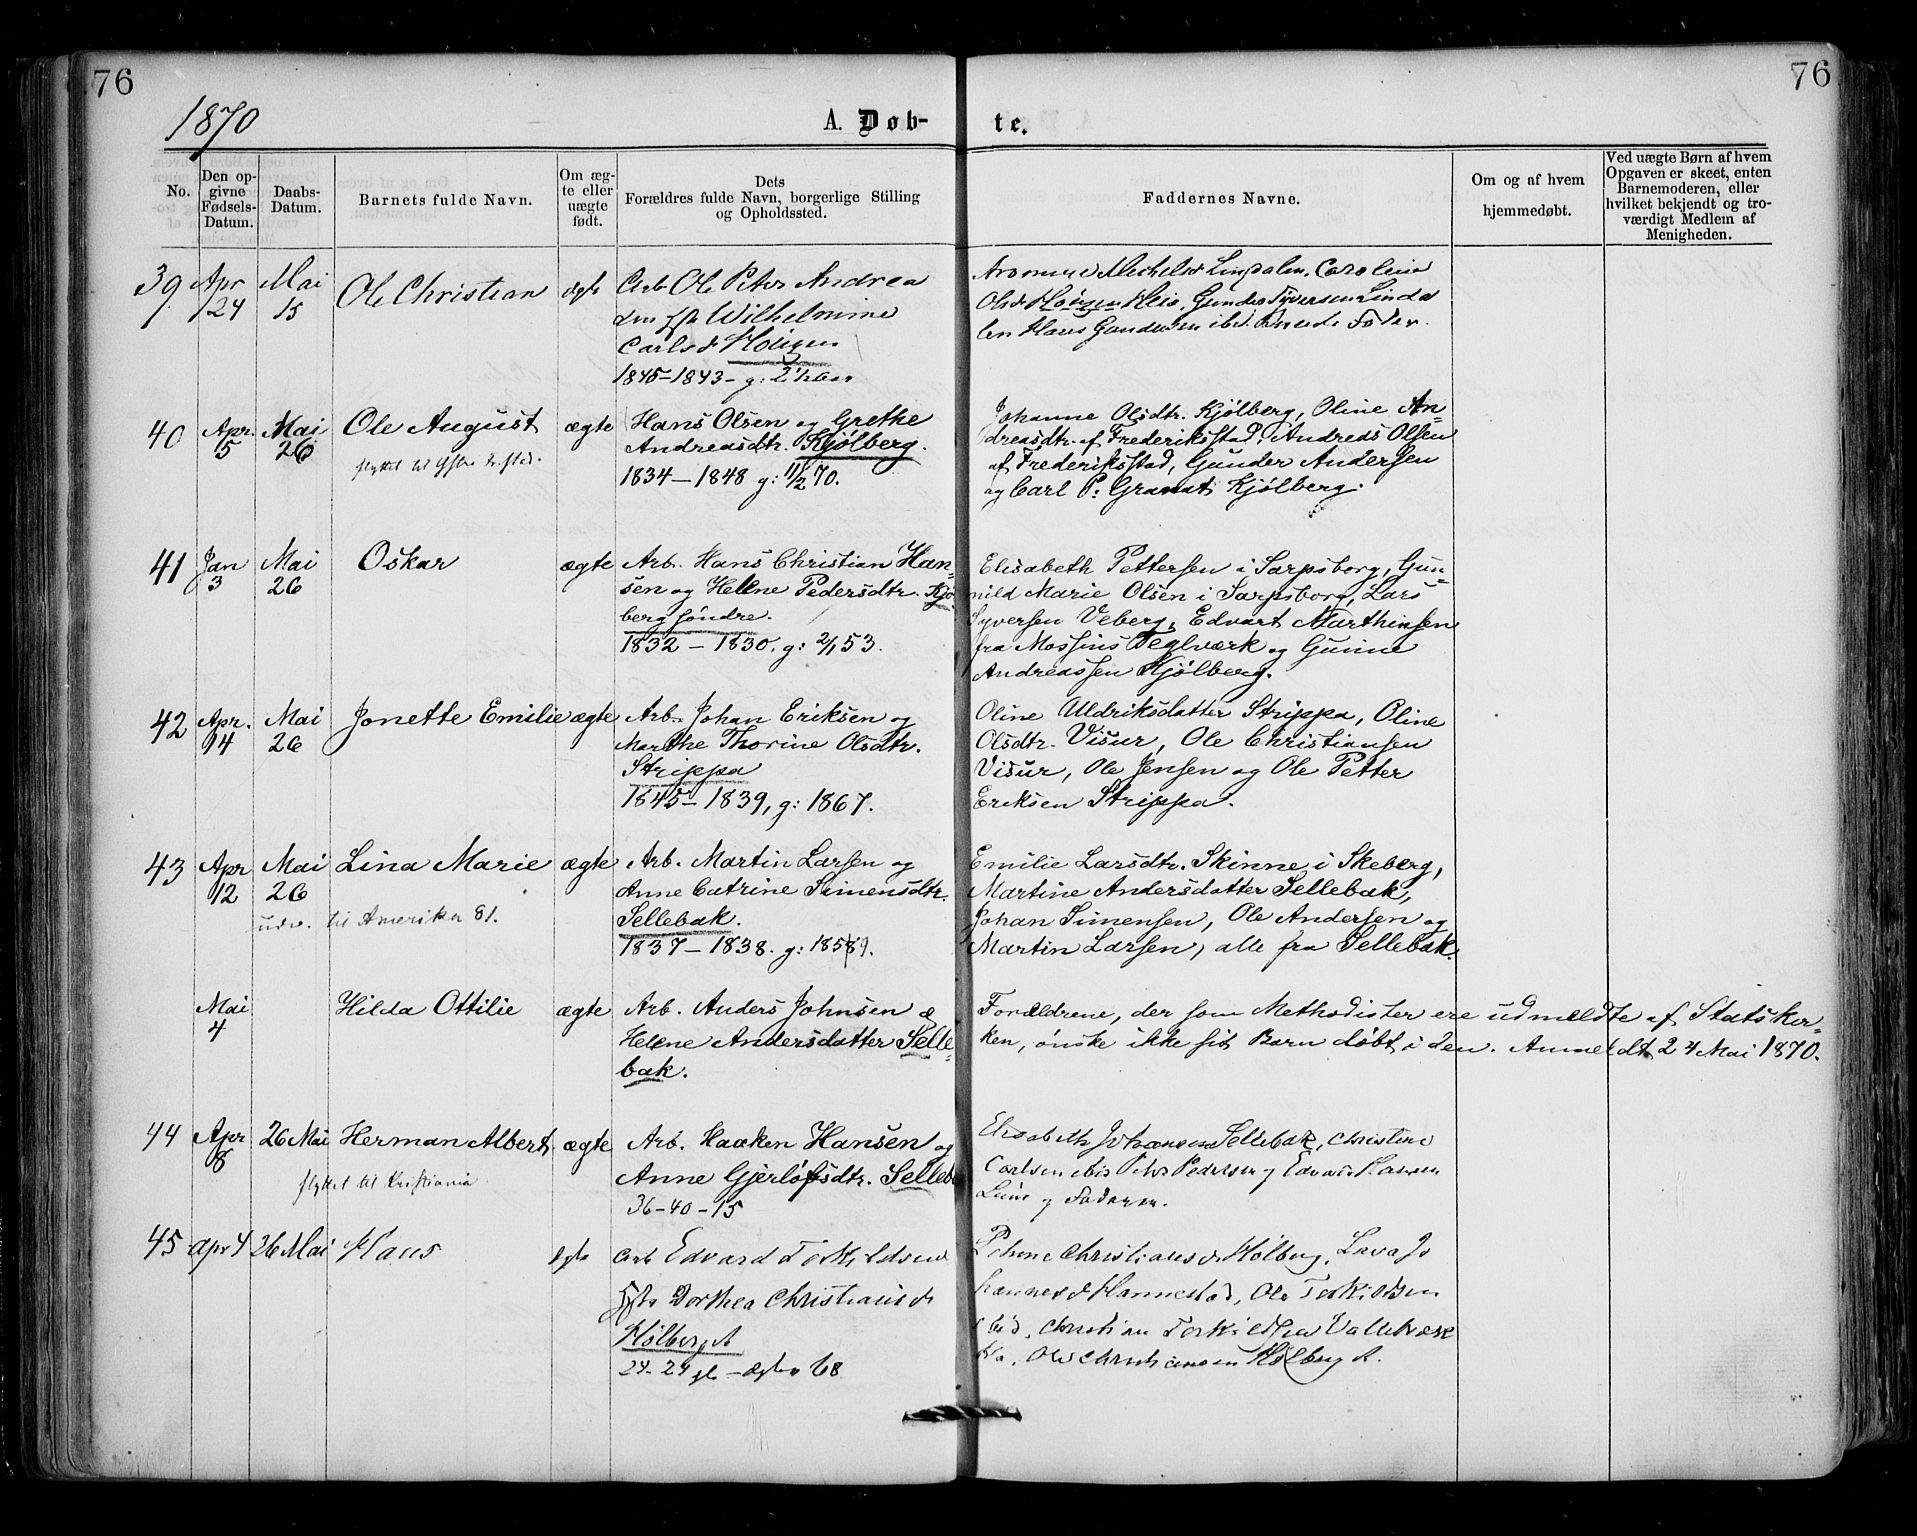 76
76
1870
A. Døb-
te.
No.
Den op-
givne
Fødsels-
Datum.
Daabs-
Datum.
Barnets fulde Navn.
Om æg-
te eller
uægte
født.
Dets
Forældres fulde Navn, borgerlige Stilling
og Opholdssted.
Faddernes Navne.
Om og af hvem
hjemmedøbt.
Ved uægte Børn af hvem
Opgaven er skeet, enten
Barnemoderen, eller
hvilket bekjendt og tro-
værdigt Medlem af
Menigheden.
39
Apr
24
Mai
15
Ole Christian
ægte
Arb Ole Peter Andrea
Wilhelmine
Carlsd Höigen
1845-1843- g:
Michelsd Lindalen. Caroline
Olsd Höigen Gunder Syversen Linda
len Hans Gundersen ibid
40
Apr.
5
Mai
26
Ole August
flyttet til
ægte
Hans Olsen og Grethe
Andreasdtr. Kjølberg.
1834 — 1848 g: 11/2 70.
Johanne Olsdtr. Kjølberg, Oline An-
dreasdtr. af Frederiksstad, Andreas Olsen
af Frederiksstad, Gunder Andersen
og Carl P. Granat Kjölberg.
41
Jan
3
Mai
26
Oskar
ægte
Arb. Hans Christian Han-
sen og Helene Pedersdtr. Kjø
berg söndre.
1832 — 1830. g: 2/1 53.
Elisabeth Pettersen i Sarpsborg, Gun-
nild Marie Olsen i Sarpsborg, Lars
Syversen Veberg, Edvart Marthinsen
fra Mossins Teglværk og Gunne
Andreassen Kjölberg.
42
Apr.
14
Mai
26
Jonette Emilie
ægte
Arb. Johan Eriksen og
Marthe Thorine Olsdtr.
Strippa
1845 — 1839, g: 1867.
Oline Uldriksdatter Strippa, Oline
Olsdtr. Visur, Ole Christiansen
Visur, Ole Jensen og Ole Petter
Eriksen Strippa.
43
Apr
12
Mai
26
Lina Marie
udv. til Amerika 81.
ægte
Arb. Martin Larsen og
Anne Catrine Simensdtr.
Sellebak.
1837 — 1838. g: 1859.
Emilie Larsdtr. Skinne i Skeberg,
Martine Andersdatter Sellebak,
Johan Simensen, Ole Andersen og
Martin Larsen, alle fra Sellebak.
Mai
4
Hilda Ottilie
ægte
Arb. Anders Johnsen &
Helene Andersdatter Selle-
bak.
Forældrene, der som Methodister ere udmeldte af Statskir-
ken, ønske ikke sit Barn döbt i den. Anmeldt 24 Mai 1870.
44
Apr
8
26 Mai
Herman Albert
flyttet til Kristiania
ægte
Arb. Haaken Hansen og
Anne Gjerlöfsdtr. Selleb
36-40-15
Elisabeth Johansen Sellebak, Christine
Carlsen ibid Peter Pedersen og Edvard Hansen
Lunde og Faderen.
45
Apr 4
26 Mai
Hans
ægte
Arb Edvard Torkildsen
Dorthea Christiansd
Kölberg
24-24 68
Christiansd Kölberg, Lava Jo
hannesd Hannestad, Ole Torkildsen
ibid, Christian Torkildsen
Ole Christiansen Kölberg